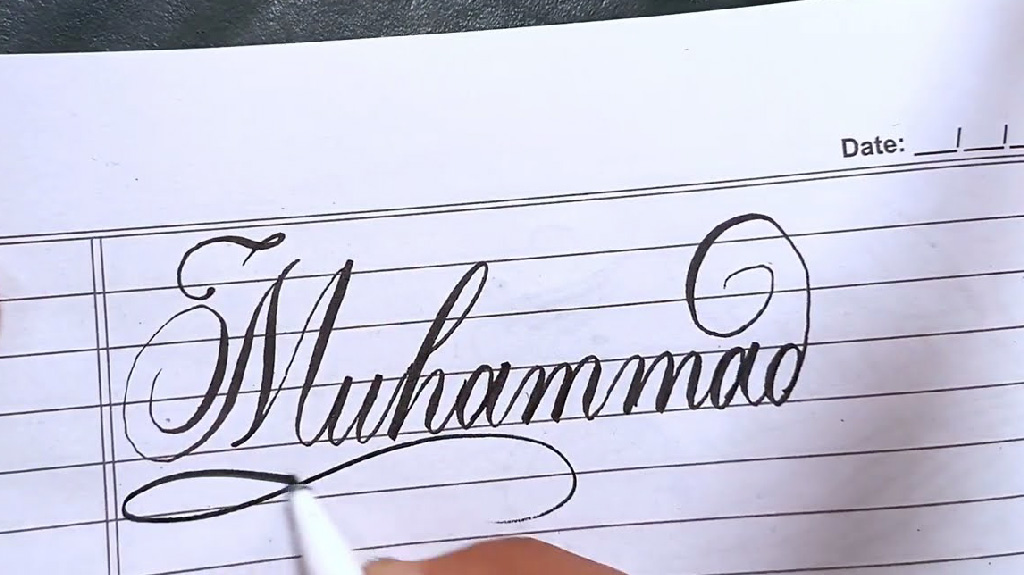 Date: __/__/_
Muhammad